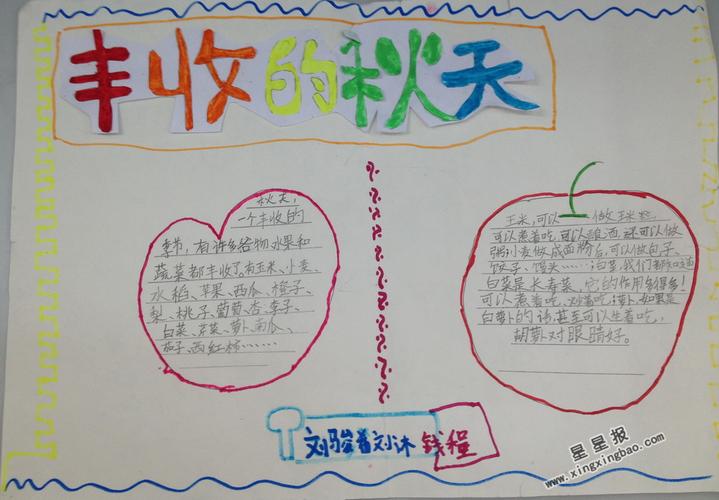 丰收的秋天
秋天,
一个丰收的
季节,有许多谷物水果和
蔬菜都丰收了有玉米、小麦、
水稻、苹果、西瓜、橙子、
梨、桃子、葡萄、杏、李子、
白菜、芹菜、萝卜、南瓜、
茄子、西红柿……
玉米,可以 做
可以煮着吃,可以 酒,还可以做
粥小麦做成面粉后,可以做包子、
饺子、馒头……白菜,我们都知道
白菜是长寿菜,它的作用多得多!
可以煮着吃、炒着吃萝卜,如果是
白萝卜的话甚至可以生着吃,
胡萝卜对眼睛好。
刘骏 刘沐 钱程
星星报
www.xingxingbao.com